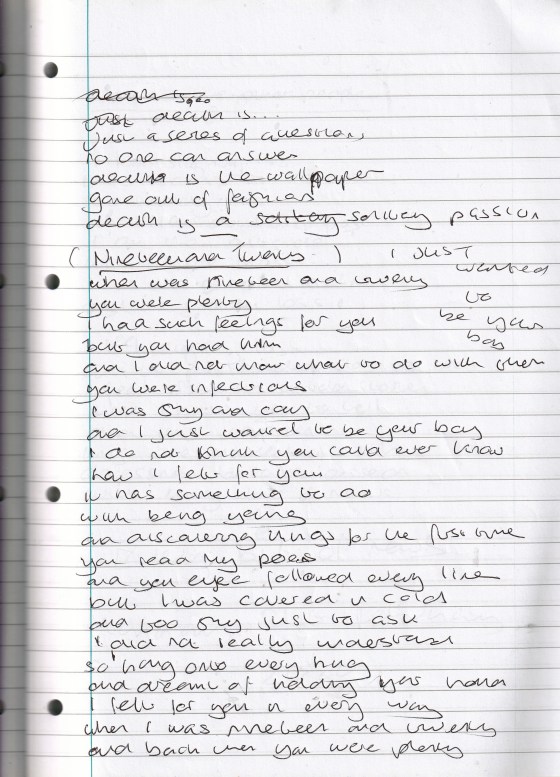 death is
just death is...
just a series of questions
no one can answer
death is the wallpaper
gone out of fashion
death is a solitary solitary passion
(Nineteen and Twenty) I JUST
wanted
to
be your
boy
when I was nineteen and twenty
you were plenty
I had such feelings for you
but you had him
and I did not know what to do with them
you were infectious
I was shy and coy
and I just wanted to be your boy
I do not think you could ever know
how I felt for you
it has something to do
with being young
and discovering things for the first time
you read my poems
and you eyes followed every line
but I was covered in cold
and too shy just to ask
I did not really understand
so hang onto every hug
and dreamt of holding your hand
I felt for you in every way
when I was nineteen and twenty
and back then you were plenty